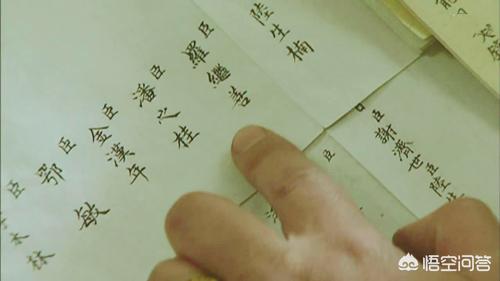 陸生楠
臣羅繼善
臣潘之桂
臣金漢年
臣鄂敏
臣
林
臣謝濟世臣陸
臣
悟空问答